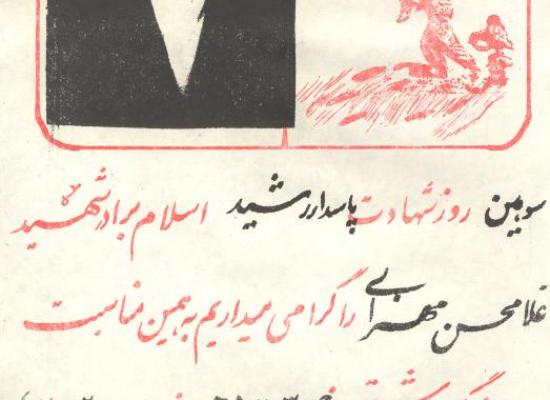 سومین روز شهادت پاسدار رشید اسلام برادر شهید
غلامحسن مهرابی را گرامی میداریم به همین مناسبت